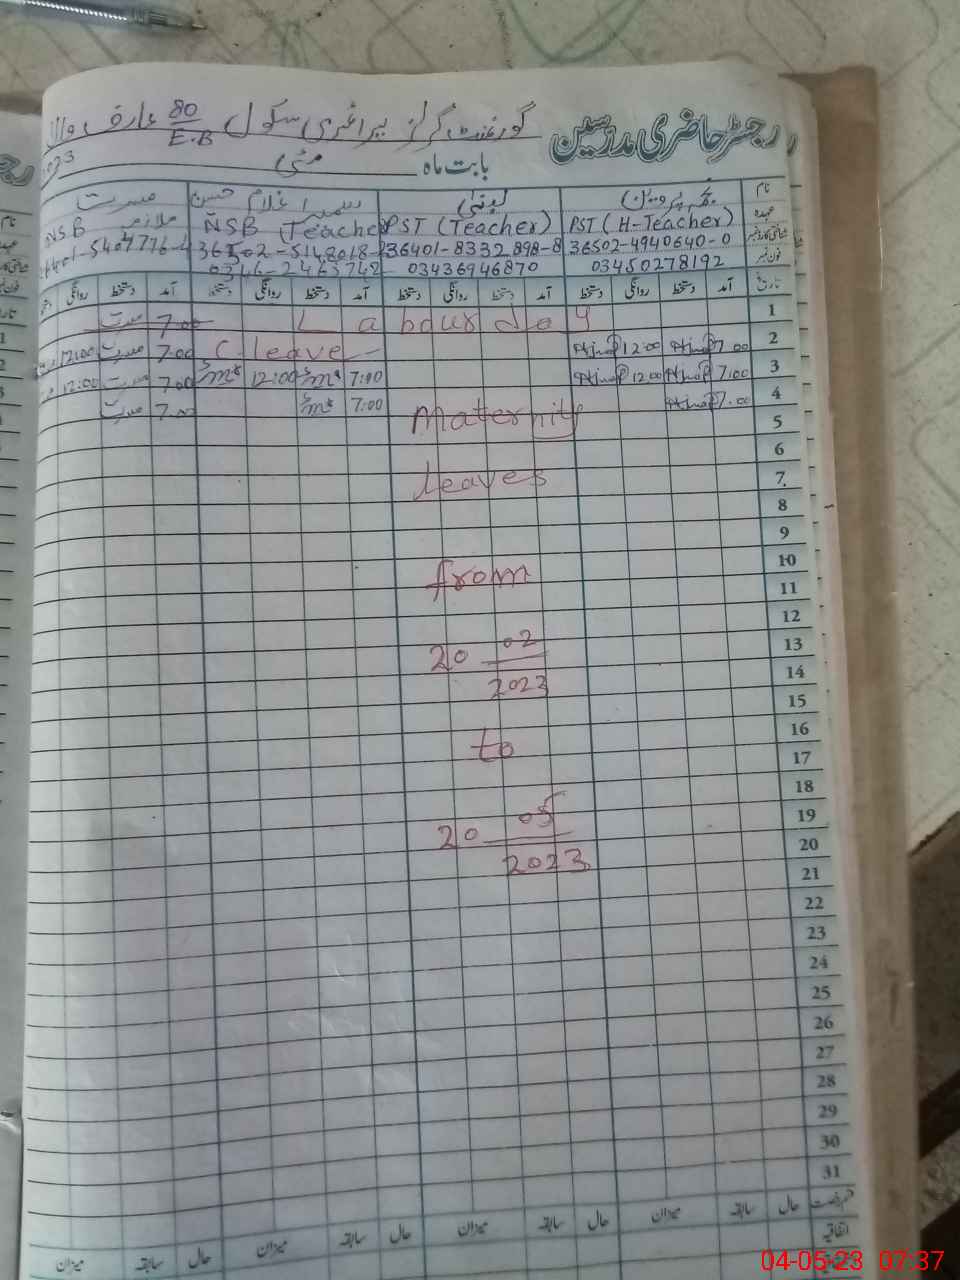 رجسٹر حاضری مدرسین
گورنمنٹ گرلز پرائمری سکول 80/E.B عارف والا
بابت ماہ مئی
نام
لبنیٰ
غلام حسن
مسرت
عہدہ
PST (H-Teacher)
PST (Teacher)
NSB (Teacher
ملازم NSB
شناختی کارڈ نمبر
36502-4940640-0
36401-8332898-8
فون نمبر
03450278192
03436946870
0346-2463742
تاریخ آمد دستخط روانگی دستخط آمد دستخط روانگی دستخط آمد دستخط روانگی دستخط آمد دستخط روانگی
1 Labour day 7:00 مسرت
2 7:00 12:00 C. leave 7:00 مسرت 12:00
3 7:00 12:00 7:00 12:00 7:00 مسرت 12:00
4 7:00 7:00 7:00 مسرت
5 Maternity
6
7 leaves
8
9
10 from
11
12
13 20 02
14 2023
15
16 to
17
18
19 20 05
20 2023
21
22
23
24
25
26
27
28
29
30
31
حال سابقہ میزان حال سابقہ میزان حال سابقہ میزان حال سابقہ میزان
اتفاقیہ
04-05-23 07:37